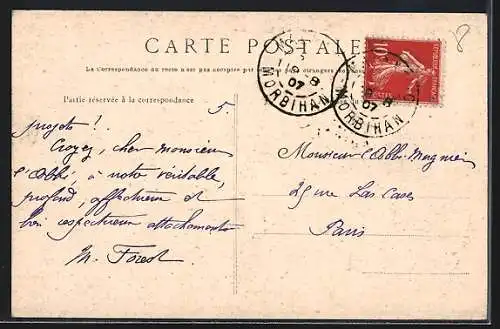 8
CARTE POSTALE
La Correspondance au recto n'est pas acceptée par
étrangers
10
8
07
MORBIHAN
8
07
MORBIHAN
Partie réservée à la correspondance
5
projets !
Croyez, cher monsieur
l'abbé, à notre véritable,
profond, affectueux et
bien respectueux attachement
M. Forest
Monsieur l'Abbé
25 rue Las Cases
Paris